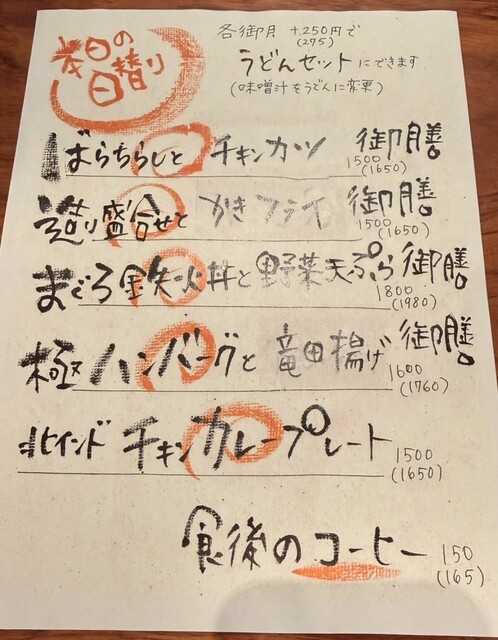 本日の
日替り
各御月 +250円で
(275)
うどんセットにできます
(味噌汁をうどんに変更)
ばらちらしと チキンカツ 御膳
1500
(1650)
造り盛合せと かきフライ 御膳
1500
(1650)
まぐろ鉄火丼と野菜天ぷら御膳
1800
(1980)
極ハンバーグと 竜田揚げ 御膳
1600
(1760)
北インド チキンカレープレート
1500
(1650)
食後のコーヒー 150
(165)